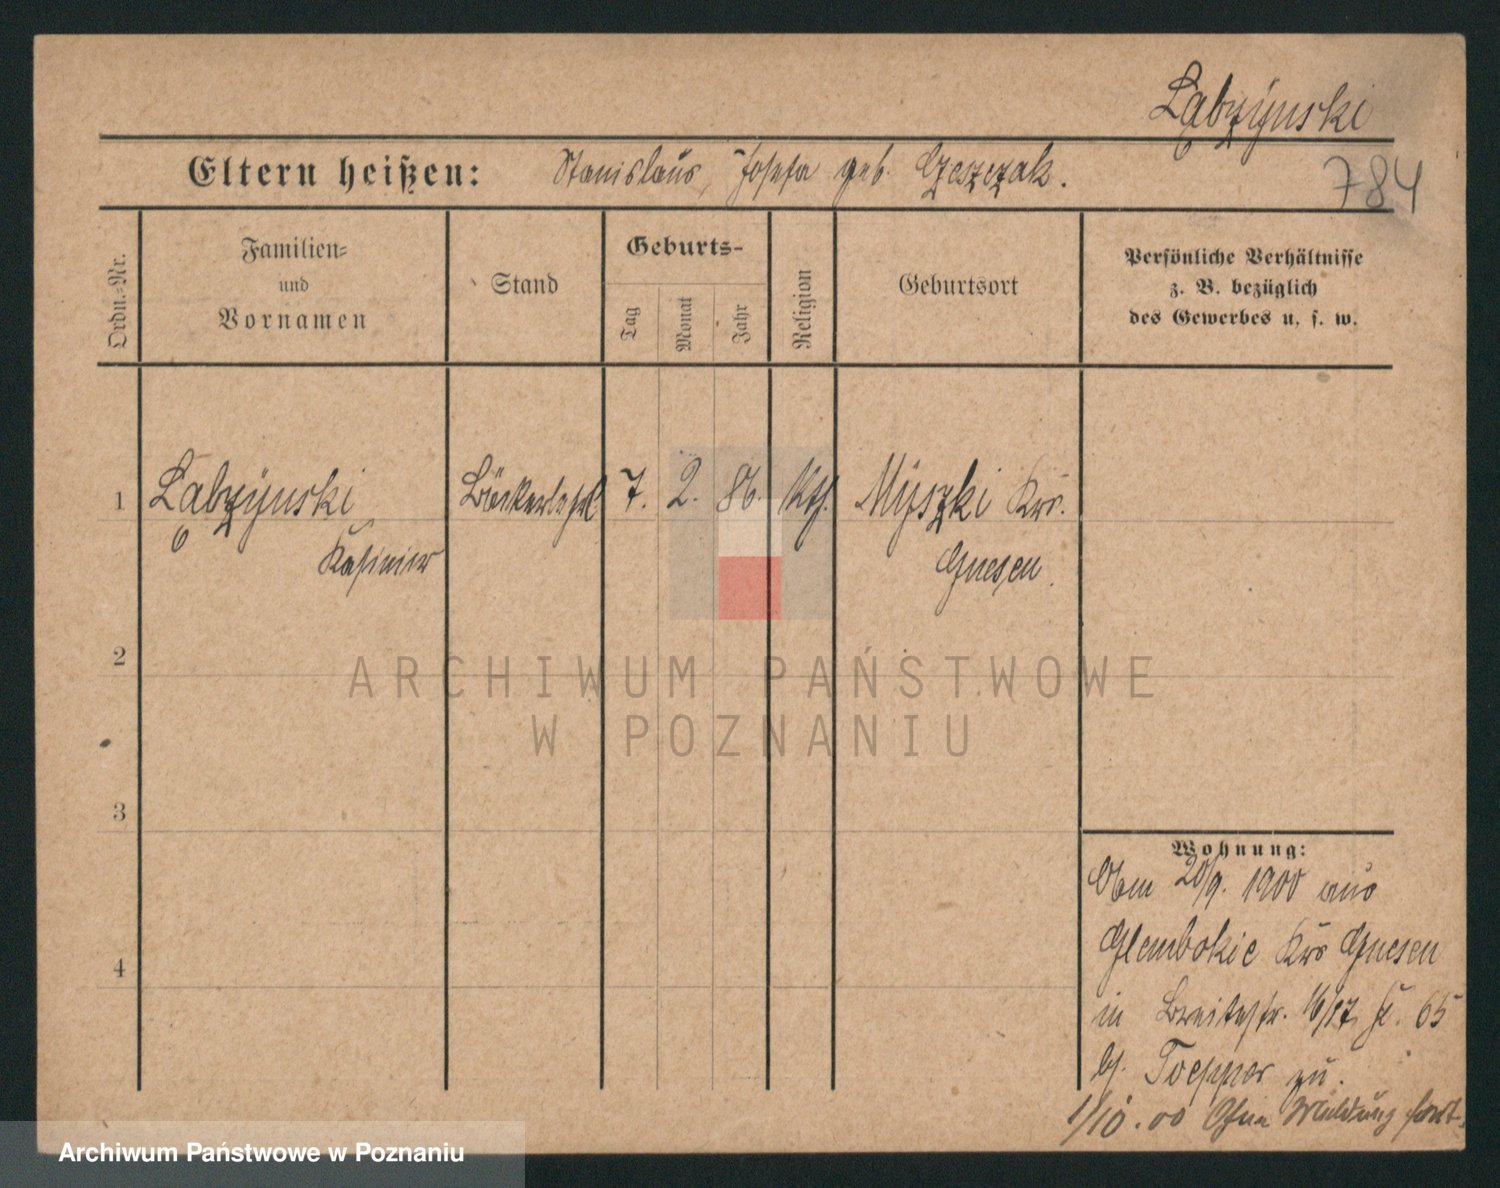 Łabzÿnski
Eltern heißen: Stanislaus, Josefa geb. Czeszczak.
784
Ordn.=Nr.
Familien=
und
Vornamen
Stand
Geburts-
Tag
Monat
Jahr
Religion
Geburtsort
Persönliche Verhältnisse
z. B. bezüglich
des Gewerbes u. s. w.
1 Łabzÿnski Bäckerlehrl. 7. 2. 86. Kth. Mÿszki Krs.
Kasimir Gnesen.
2
ARCHIWUM PAŃSTWOWE
W POZNANIU
3
4
Wohnung:
Am 20/9. 1900 aus
Glembokie Krs Gnesen
in Breitestr. 16/17 65
bj. Toepper zu.
1/10.00 Ohne Meldung fort.
Archiwum Państwowe w Poznaniu